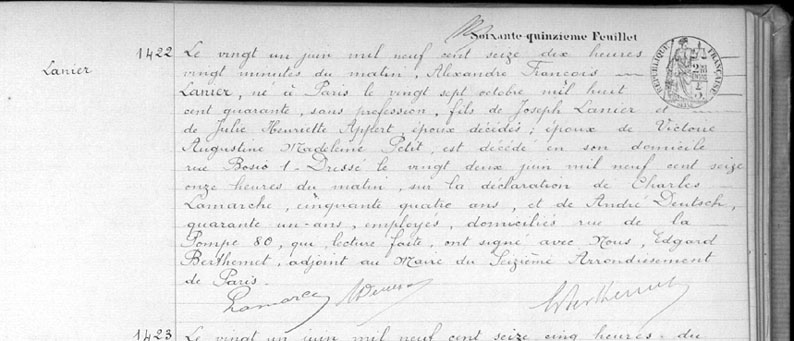 Soixante quinzième Feuillet
1422
Lanier
RÉPUBLIQUE FRANÇAISE
Le vingt un juin mil neuf cent seize dix heures
vingt minutes du matin, Alexandre François
Lanier, né à Paris le vingt sept octobre mil huit
cent quarante, sans profession, fils de Joseph Lanier et
de Julie Henriette Appert, époux décédés; époux de Victorie
Augustine Madeleine Petit, est décédé en son domicile
rue Bosio 1 - Dressé le vingt deux juin mil neuf cent seize
onze heures du matin, sur la déclaration de Charles
Lamarche, cinquante quatre ans, et de André Deutsch,
quarante un-ans, employés, domiciliés rue de la
Pompe 80, qui, lecture faite, ont signé avec Nous, Edgard
Berthemet, adjoint au Maire du Seizième Arrondissement
de Paris.
Lamarche Berthemet
1423
Le vingt un juin mil neuf cent seize cinq heures du